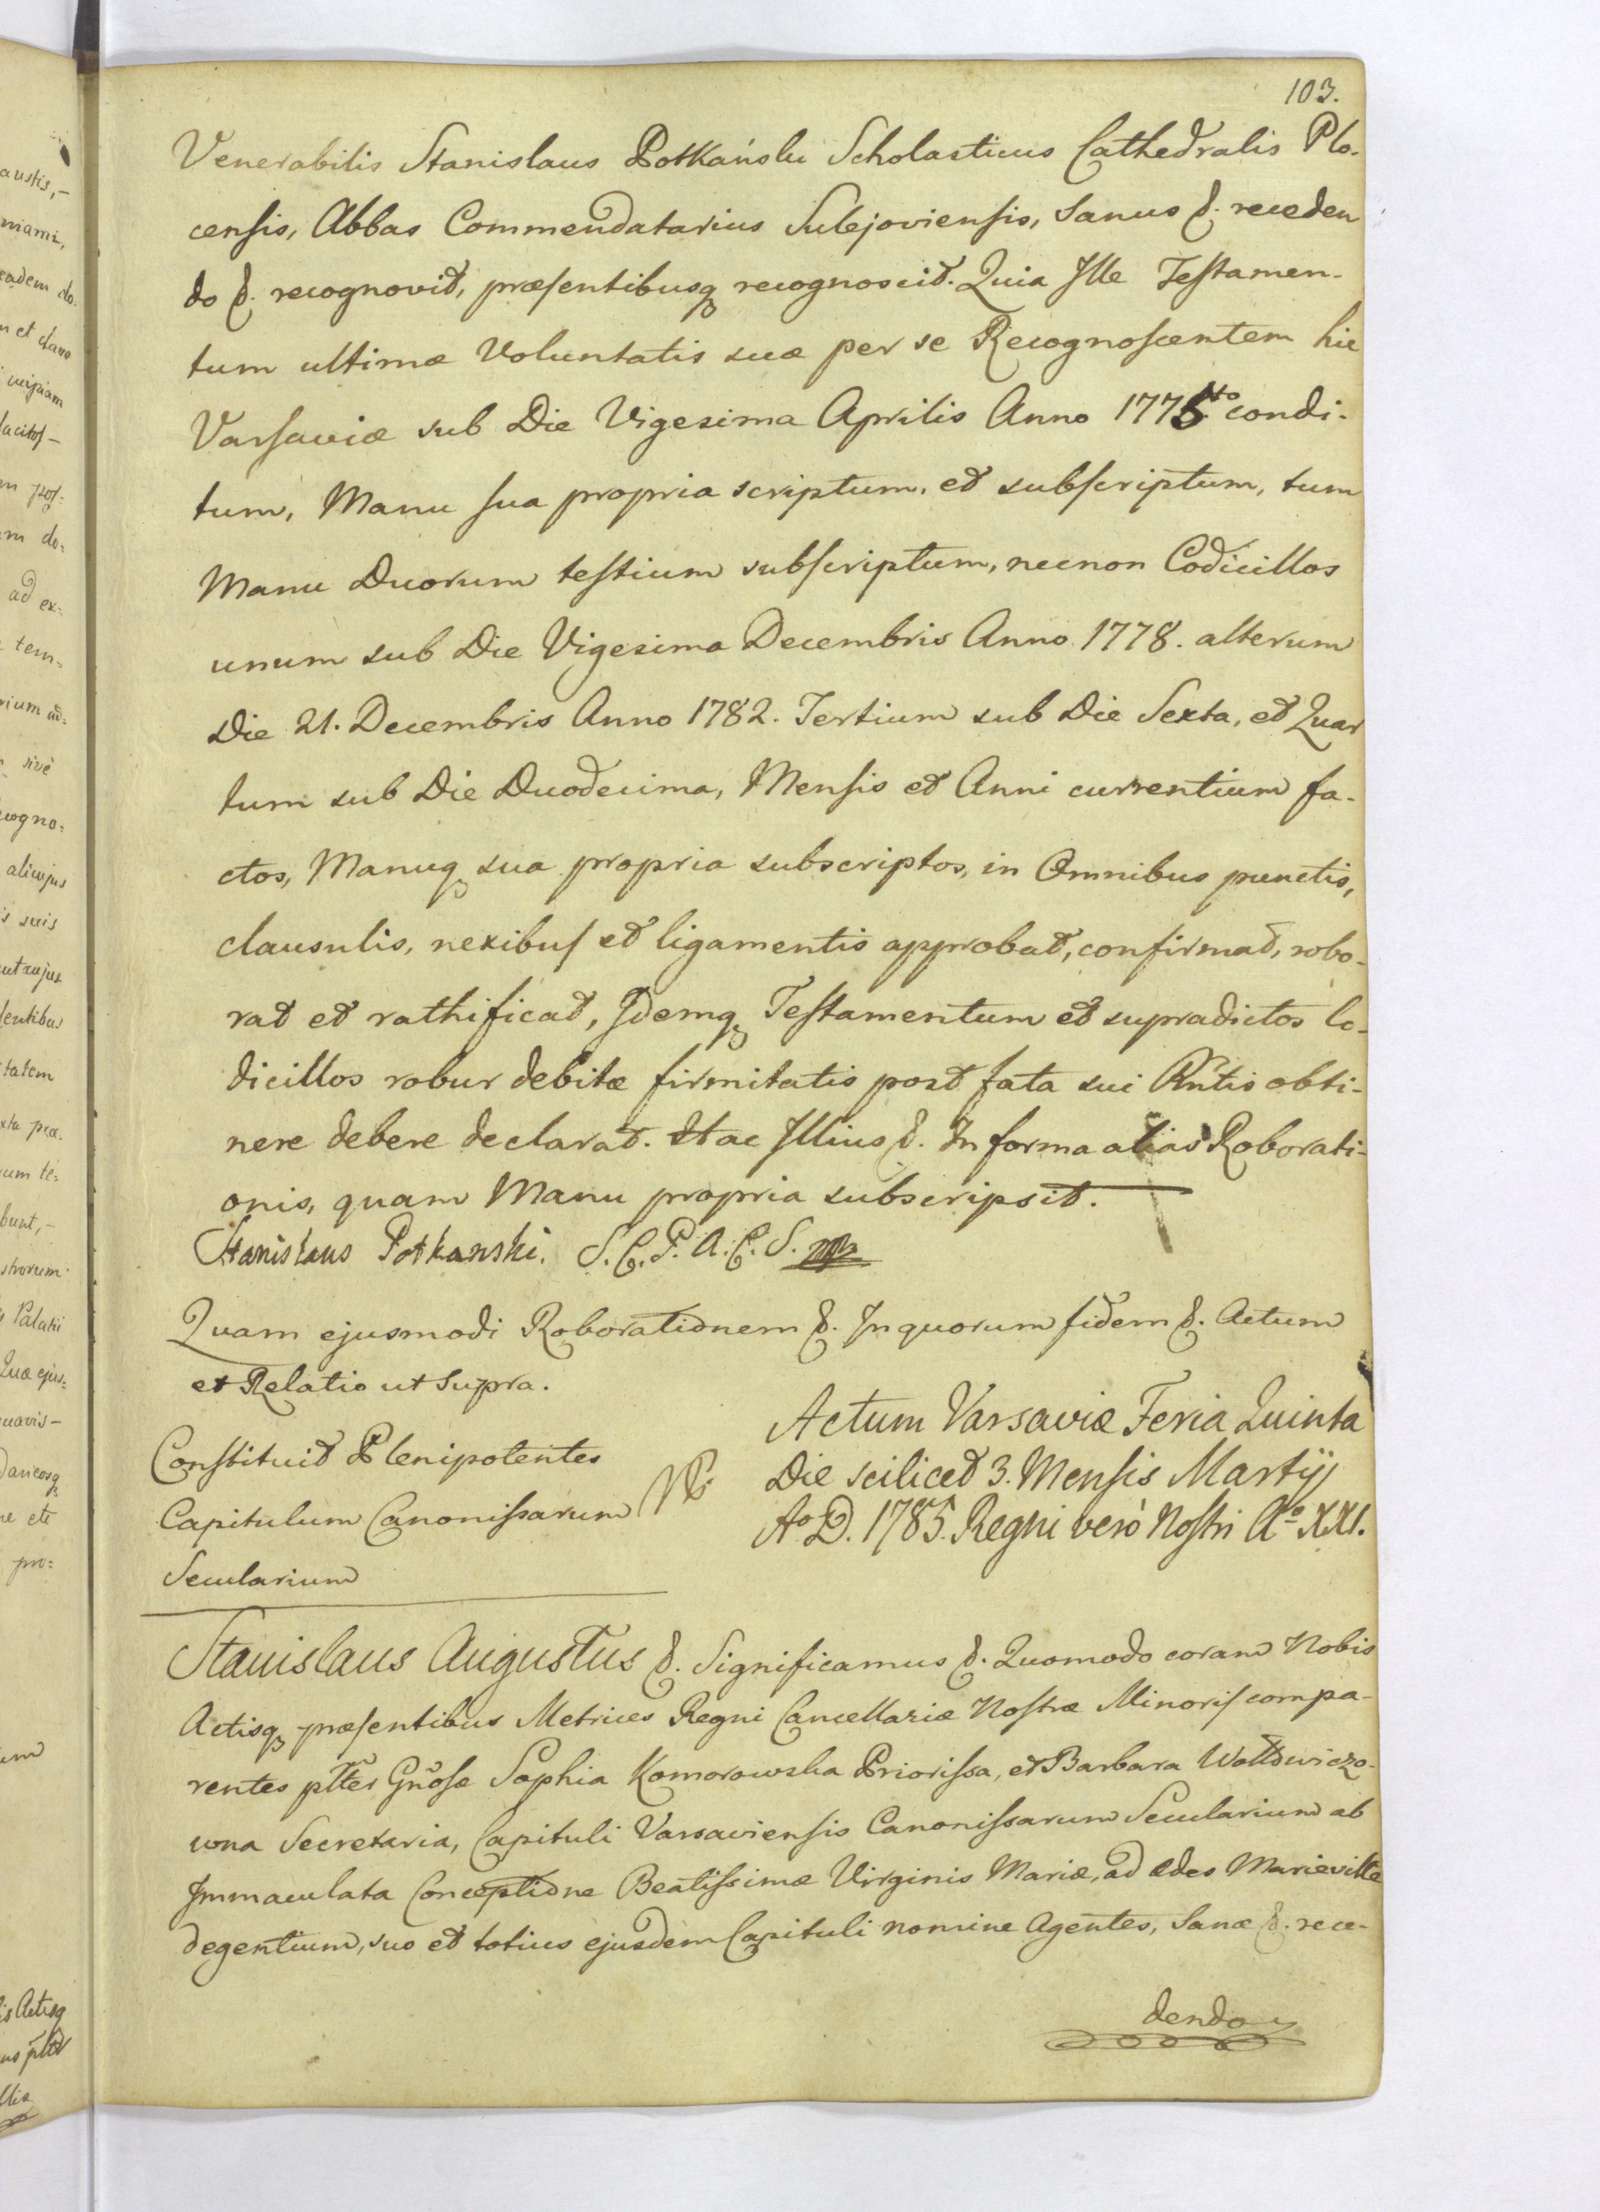 103.
Venerabilis Stanislaus Potkański Scholasticus Cathedralis Plo-
censis, Abbas Commendatarius Sulejoviensis, Sanus &. receden
do &. recognovit, præsentibusq recognoscit. Quia Ille Testamen-
tum ultimæ Voluntatis suæ per se Recognoscentem hic
Varsaviæ sub Die Vigesima Aprilis Anno 1775to condi-
tum, Manu sua propria scriptum, et subscriptum, tum
Manu Duorum testium subscriptum, necnon Codicillos
unum sub Die Vigesima Decembris Anno 1778. alterum
Die 21. Decembris Anno 1782. Tertium sub Die Sexta, et Quar
tum sub Die Duodecima, Mensis et Anni currentium fa-
ctos, Manuq sua propria subscriptos, in Omnibus punctis,
clausulis, nexibus et ligamentis approbat, confirmat, robo-
rat et rathificat, Idemq Testamentum et supradictos Co-
dicillos robur debitæ firmitatis post fata sui Rntis obti-
nere debere declarat. Hac Illius &. In forma alias Roborati-
onis, quam Manu propria subscripsit.
Stanislaus Potkanski. S. C. P. A. C. S. mp
Quam ejusmodi Roborationem &. In quorum fidem &. Actum
et Relatio ut Supra.
Constituit Plenipotentes
Capitulum Canonissarum
Secularium
Actum Varsaviæ Feria Quinta
Die scilicet 3. Mensis Martij
Ao D. 1785. Regni verò Nostri Ao XXI.
Stanislaus Augustus &. Significamus &. Quomodo coram Nobis
Actisq præsentibus Metrices Regni Cancellariæ Nostræ Minoris compa-
rentes plter Gnosæ Sophia Komorowska Priorissa, et Barbara
wna Secretaria, Capituli Varsaviensis Canonissarum Secularium ab
Immaculata Conceptione Beatissimæ Virginis Mariæ, ad ædes Marieville
degentium, suo et totius ejusdem Capituli nomine Agentes, Sanæ &. rece-
dendo